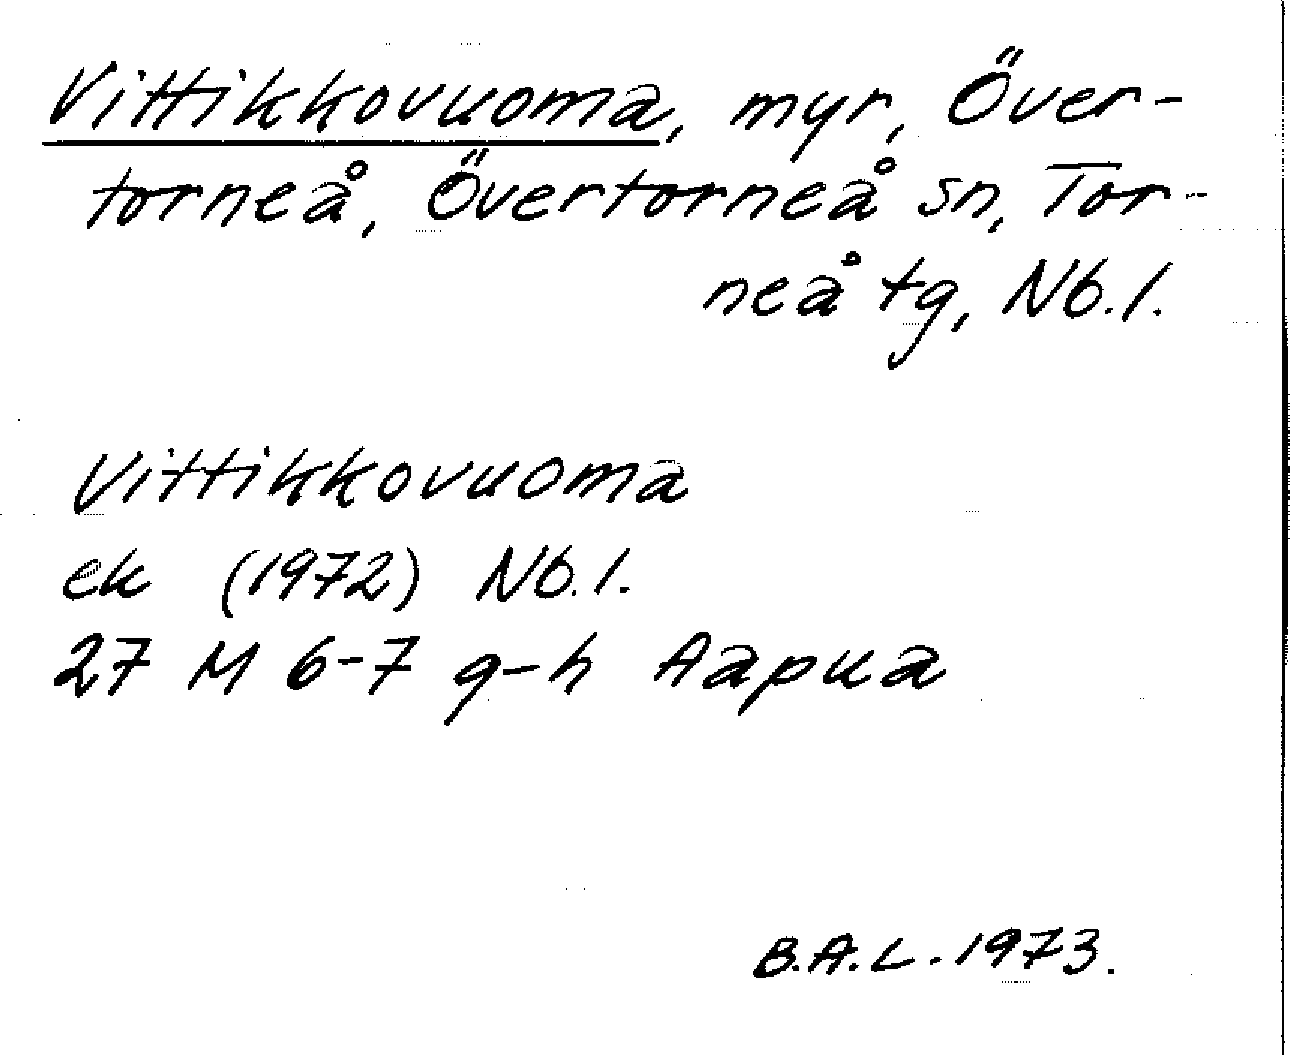 Vittikkovuoma, myr, Över-
torneå, Övertorneå sn, Tor-
neå tg, Nb.l.
Vittikkovuoma
ek (1972) Nb.l.
27 M 6-7 g-h Aapua
B.A.L. 1973.